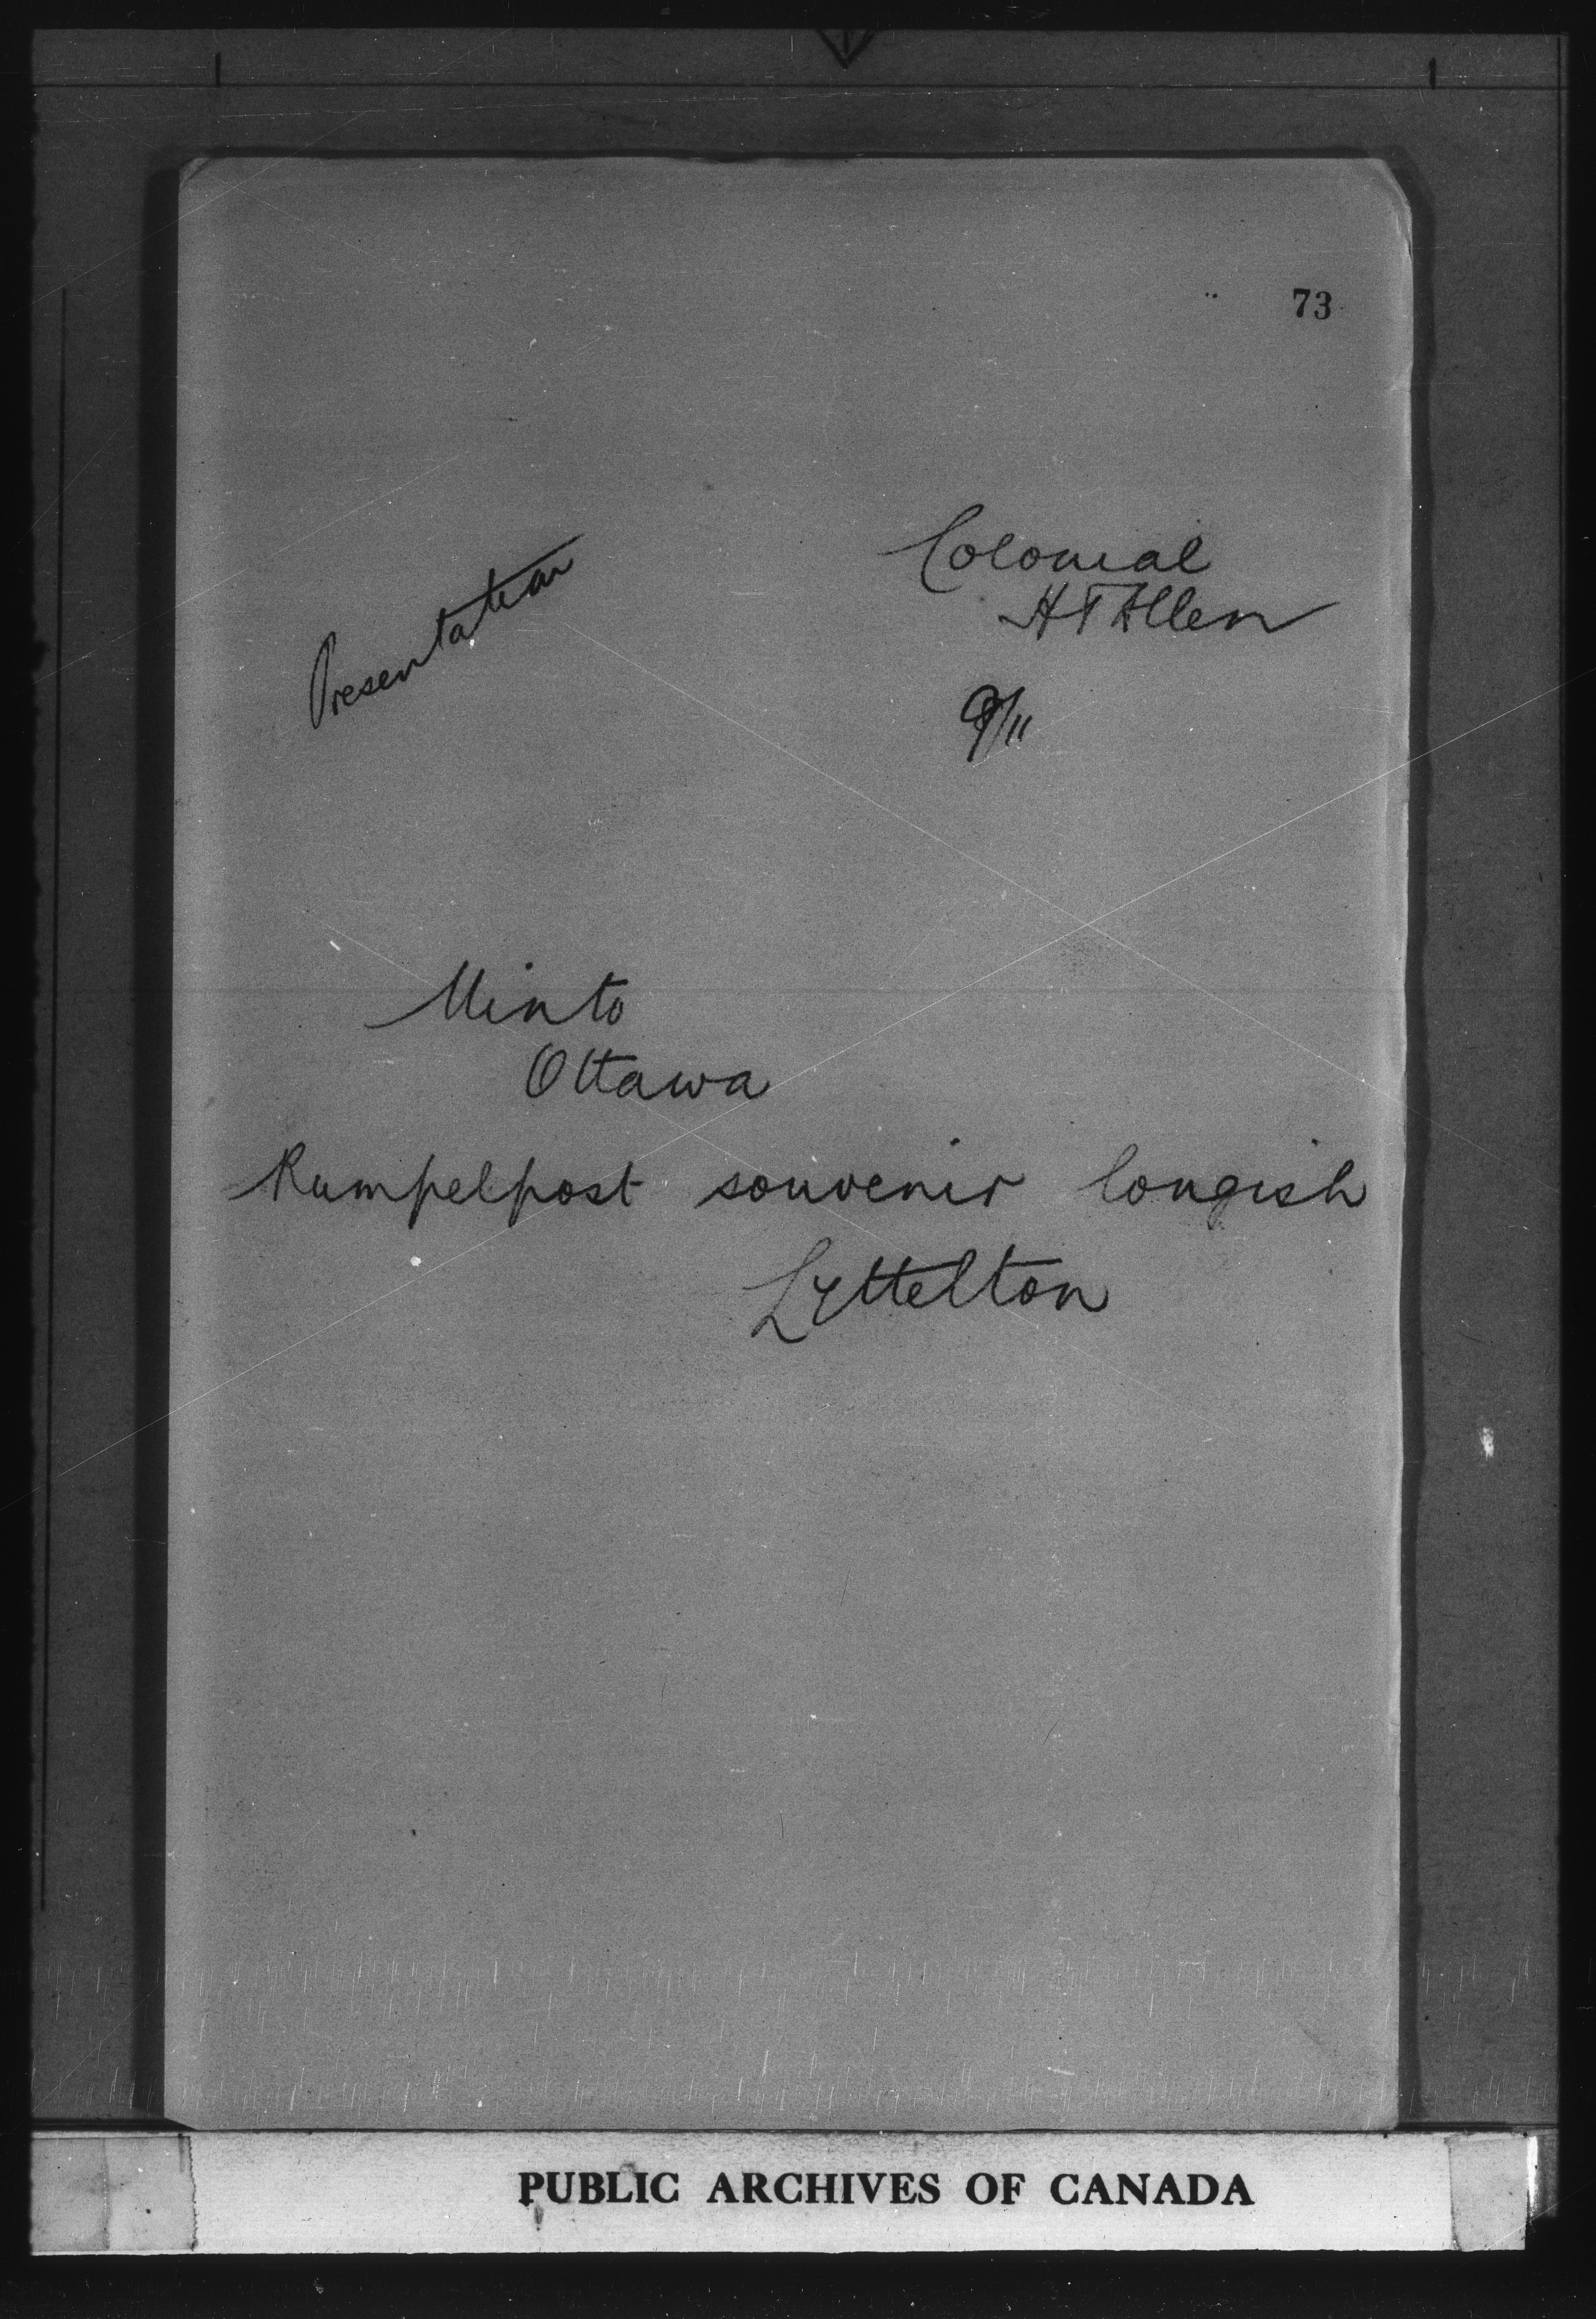 73
Presentation
Colonial
H T Allen
9/11
Minto
Ottawa
Rumpelpost souvenir longish
Lyttelton
PUBLIC ARCHIVES OF CANADA